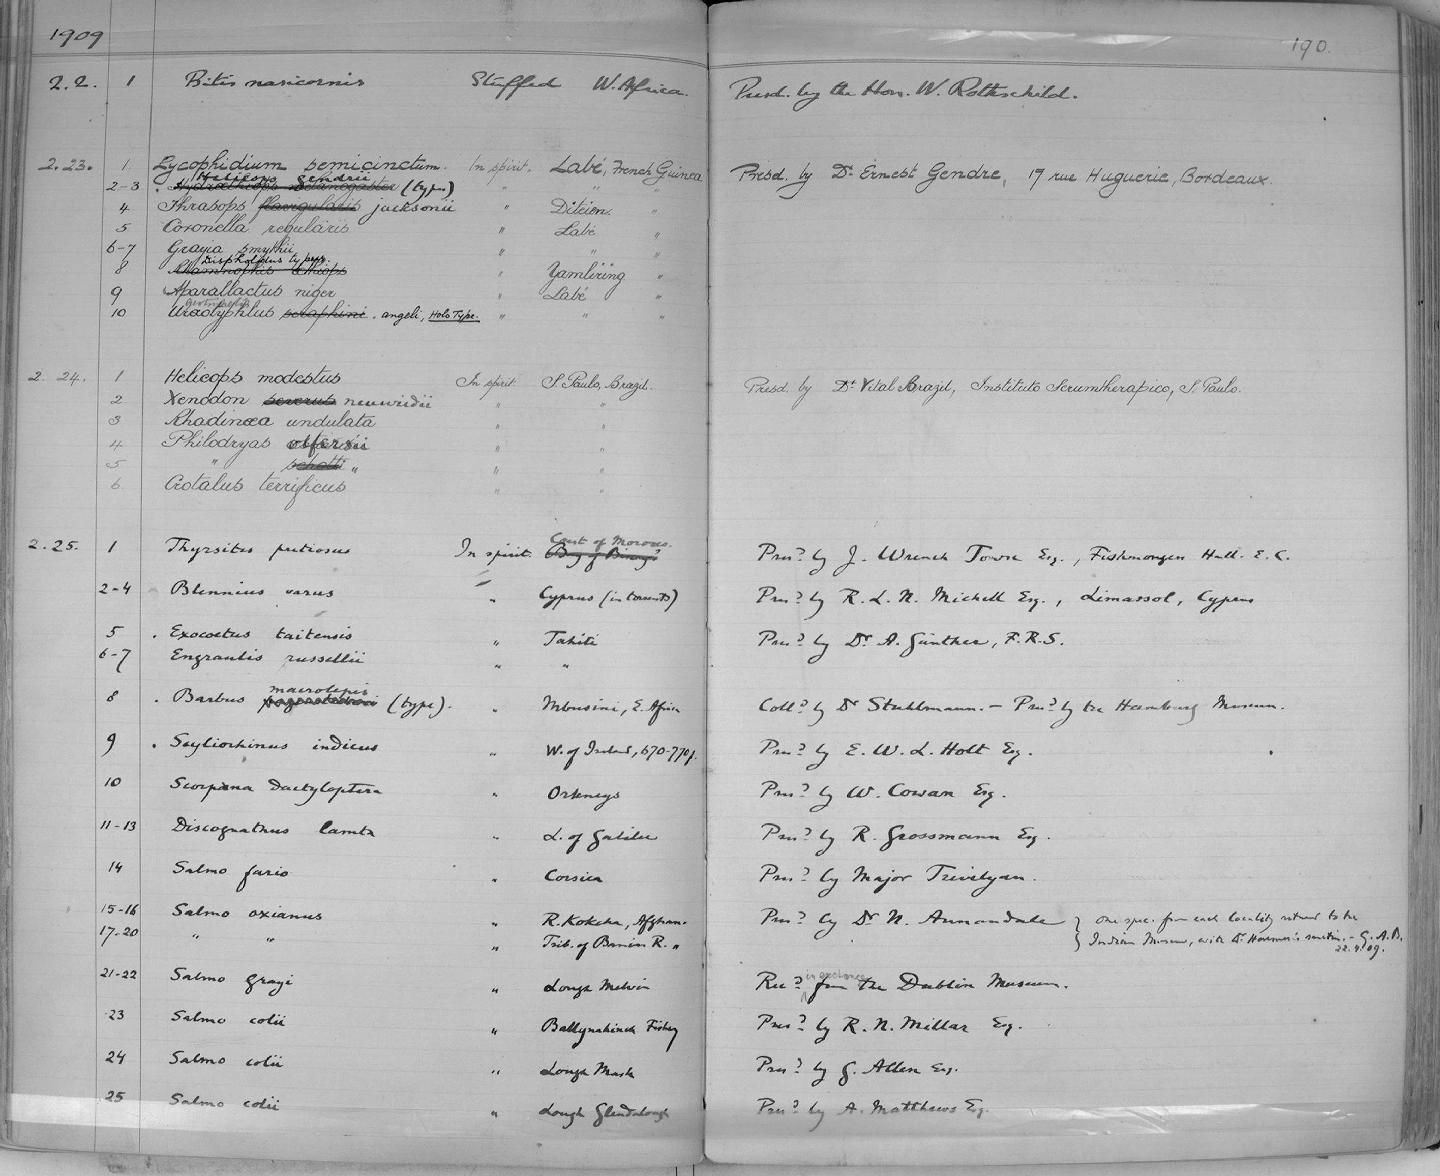 1909
190.
2.2. 1 Bitis nasicornis Stuffed W. Africa. Presd. by the Hon. W. Rothschild.
2.23. 1. Lycophidium semicinctum. In spirit. Labé, French Guinea Presd. by Dr. Ernest Gendre, 17 rue Huguerie, Bordeaux.
Helicops gendrii
2-3 melanogaster (type) " " "
4 Thrasops flavigularis jacksonii " Ditèïn. "
5 Coronella regularis " Labé "
6-7 Grayia smythii " " "
Dispholidus typus.
8 Rhamnophis " Yamliring "
9 Aparallactus niger " Labé "
10 seraphini. angeli, Holo Type. " " "
2. 24. 1 Helicops modestus In spirit S. Paulo, Brazil. Presd. by Dr. Vital Brazil, Instituto Serumtherapico, S. Paulo.
2 Xenodon severus neuwiedii " "
3 Rhadinæa undulata " "
4 Philodryas olfersii " "
5 " schotti " " "
6. Crotalus terrificus " "
Coast of Morocco.
2.25. 1 Thyrsites pretiosus In spirit. Bay of Biscay? Pres.d by J. Wrench Towse Esq., Fishmongers Hall. E.C.
2-4 Blennius varus " Cyprus (in torrents) Pres.d by R.L.N. Michell Esq., Limassol, Cyprus
5 . Exocoetus taitensis " Tahiti Pres.d by Dr. A. Günther, F.R.S.
6-7 Engraulis russellii " "
macrolepis
8 . Barbus (type). " Mbusini, E. Africa Coll.d by Dr Stuhlmann. — Pres.d by the Hamburg Museum.
9 . Scyliorhinus indicus " W. of Ireland, 670-770 f. Pres.d by E.W.L. Holt Esq.
10 Scorpæna dactyloptera " Orkneys Pres.d by W. Cowan Esq.
11-13 Discognathus lamta " L. of Galilee Pres.d by R. Grossmann Esq.
14 Salmo fario " Corsica Pres.d by Major Trevelyan.
15-16 Salmo oxianus " R. Kokcha, Afghan. Pres.d by Dr. N. Annandale } One spec. from each locality returned to the
17-20 " " " Trib. of Bamian R. " } Indian Museum, with Dr Harmer's sanction. - G.A.B.
22.4.09.
in exchange
21-22 Salmo grayi " Lough Melvin Rec.d from the Dublin Museum.
23 Salmo colii " Ballynahinch Fishery Pres.d by R.N. Millar Esq.
24 Salmo colii " Lough Mask Pres.d by G. Allen Esq.
25 Salmo colii " Lough Glendalough Pres.d by A. Matthews Esq.